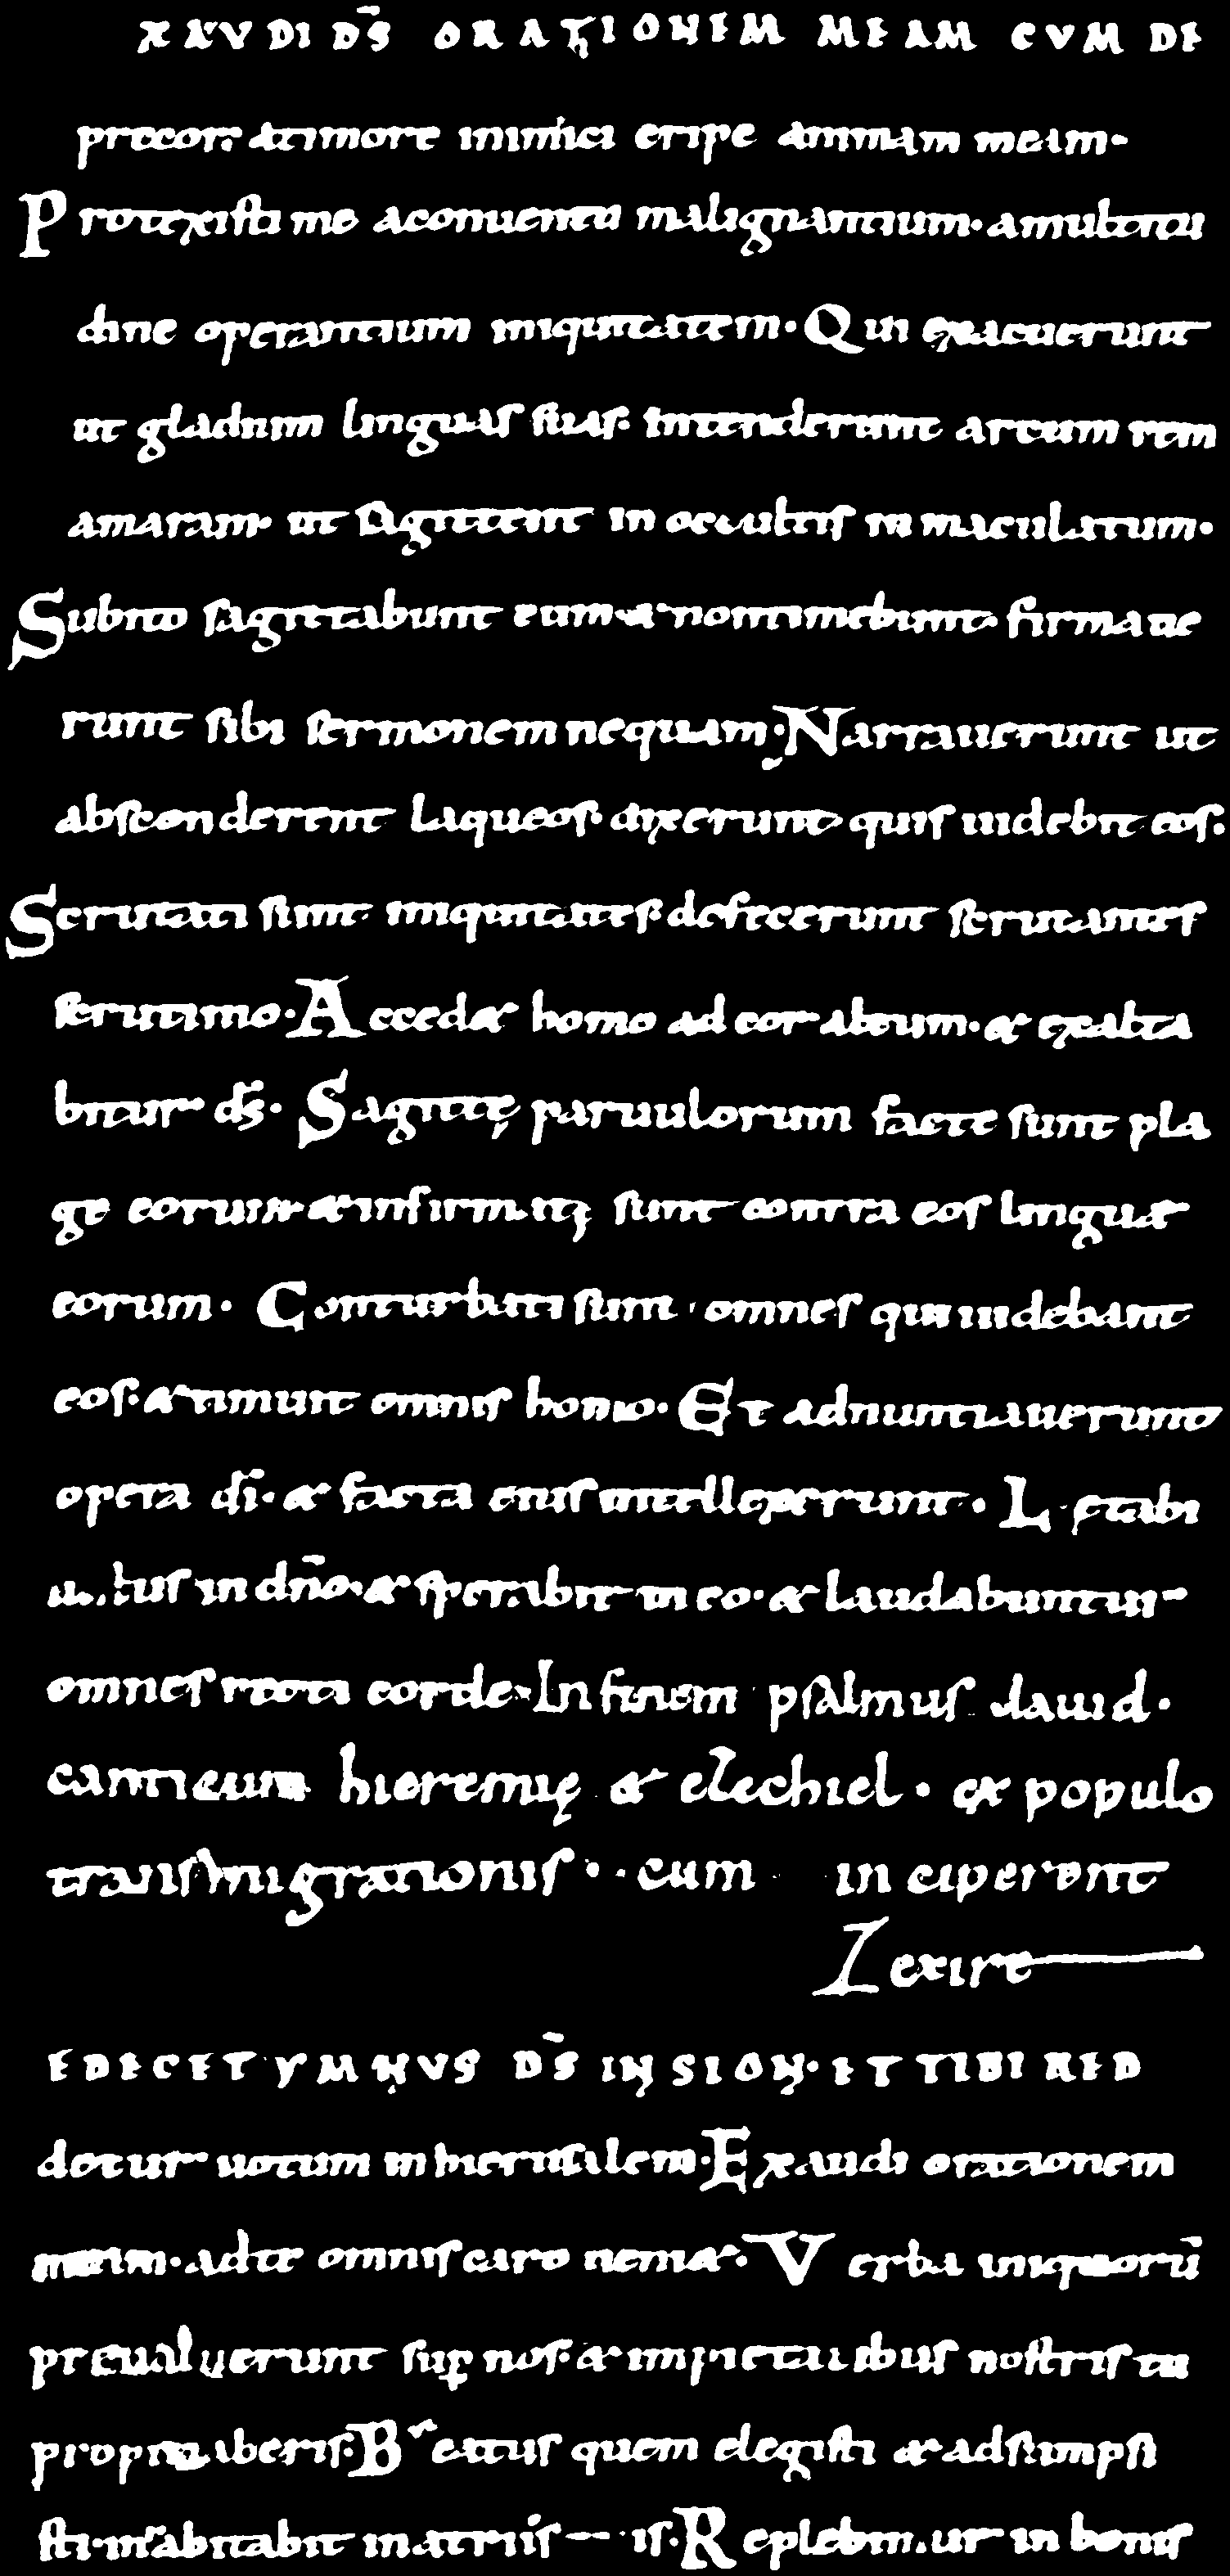 XAVDI DS̄ ORATIONEM MEAM CVM DE
precor. atimore inimici eripe animam meam.
Protexisti me aconuentu malignantium. amultitu
dine operantium iniquitatem. Qui exacuerunt
ut gladium linguas suas. intenderunt arcum rem
amaram ut sagittent in occultis inmaculatum.
Subito sagittabunt eum & nontimebunt. firmaue
runt sibi sermonem nequam. Narrauerunt ut
absconderent laqueos. dixerunt quis uidebit eos.
Scrutati sunt iniquitates. defecerunt scrutantes
scrutinio. Accedet homo ad cor altum. & exalta
bitur ds̄. Sagittę paruulorum facte sunt pla
ge eorum & infirmatę sunt contra eos linguae
eorum. Conturbati sunt omnes qui uidebant
eos. & timuit omnis homo. Et adnuntiauerunt
opera dī. & facta eius intellexerunt. Lętabi
tur ius in dn̄o. & sperabit in eo. & laudabuntur
omnes recti corde. In finem psalmus dauid.
canticum hieremię & ezechiel. ex populo
transmigrationis. cum inciperent
exire
E DECET YMNVS DS̄ IN SION. ET TIBI RED
detur uotum in hierusalem. Exaudi orationem
meam. ad te omnis caro ueniet. Verba iniquorū
preualuerunt sup nos. & impietatibus nostris tu
propitiaberis. Beatus quem elegisti & adsumpsi
sti. inhabitabit in atriis — is. Replebimur in bonis